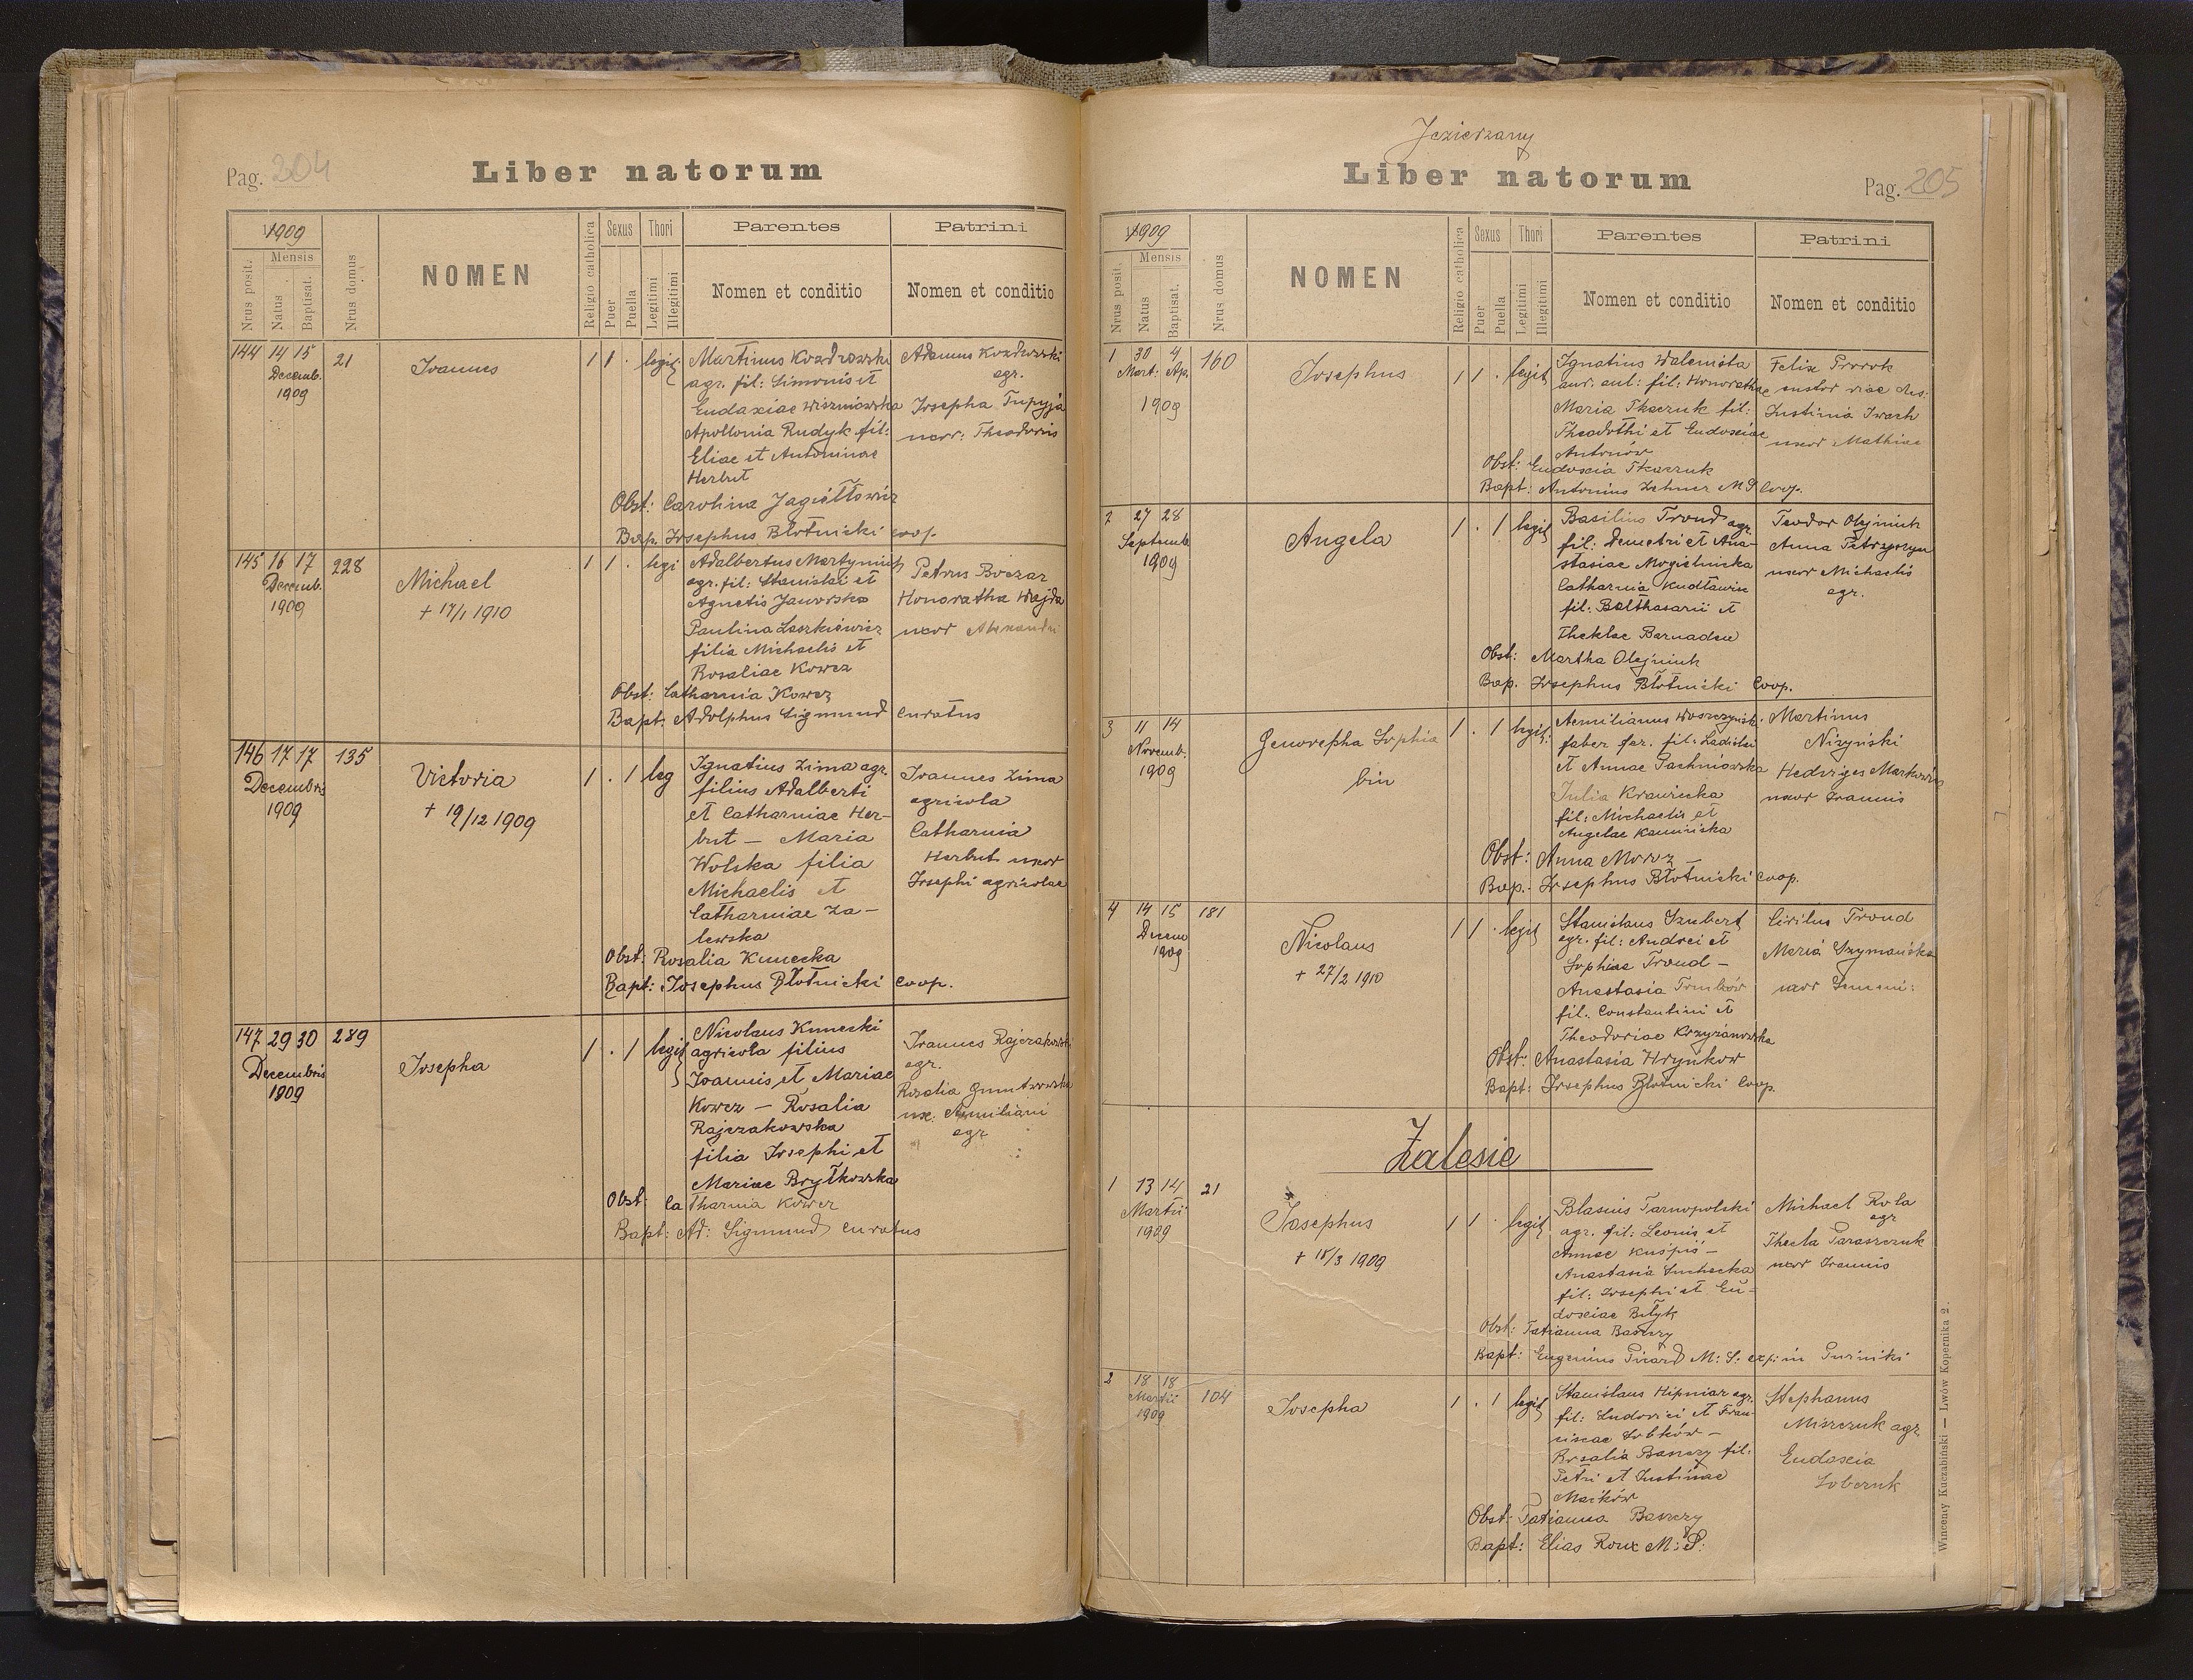 Pag. 204
Liber natorum
1909
Mensis
Nrus posit.
Natus
Baptisat.
Nrus domus
NOMEN
Religio catholica
Sexus
Puer
Puella
Thori
Legitimi
Illegitimi
Parentes
Nomen et conditio
Patrini
Nomen et conditio
144 14 15 21
Decemb.
1909
Ioannes
1 1 . legit
Martinus Kozdrowski
agr. fil: Simonis et
Eudoxiae Wiszniowska
Apollonia Rudyk fil:
Eliae et Antoninae
Herbut
Adamus Kozdrowski
agr.
Josepha Tupyja
uxor: Theodoris
Obst: Carolina Jagiełłowicz
Bap. Josephus Błotnicki coop.
145 16 17 228
Decemb.
1909
Michael
+ 17/1 1910
1 1 . legi
Adalbertus Martyniuk
agr. fil: Stanislai et
Agnetis Jaworska
Paulina Laszkiewicz
filia Michaelis et
Rosaliae Kowcz
Petrus Boczar
Honoratha Wajda
uxor Alexandri
Obst: Catharina Kowcz
Bapt: Adolphus Sigmund curatus
146 17 17 135
Decembris
1909
Victoria
+ 19/12 1909
1 . 1 leg
Ignatius Zima agr.
filius Adalberti
et Catharniae Her-
but — Maria
Wolska filia
Michaelis et
Catharniae Za-
lewska
Ioannes Zima
agricola
Catharnia
Herbut uxor
Josephi agricolae
Obst: Rosalia Kunecka
Bapt: Josephus Błotnicki coop.
147 29 30 289
Decembris
1909
Josepha
1 . 1 legit
Nicolaus Kunecki
agricola filius
Ioannis et Mariae
Kowcz — Rosalia
Rajczakowska
filia Josephi et
Mariae Brytkowska
Ioannes Rajczakowski
agr.
Rosalia
ux. Aemiliani
agr
Obst: Catharnia Kowcz
Bapt: Ad: Sigmund curatus
Jezierzany
Liber natorum
Pag. 205
1909
Mensis
Nrus posit.
Natus
Baptisat.
Nrus domus
NOMEN
Religio catholica
Sexus
Puer
Puella
Thori
Legitimi
Illegitimi
Parentes
Nomen et conditio
Patrini
Nomen et conditio
1 30 4 160
Mart: Ap.
1909
Josephus
1 1 . legit
Ignatius
aur. aul: fil: Honorathae
Maria Tkaczuk fil:
Theodothi et Eudoxiae
Antonów
Felix Prorok
custor viae
Justinia Iwach
uxor Mathiae
Obst: Eudoxia Tkaczuk
Bapt: Antonius Zehner M S Coop.
2 27 28
Septemb.
1909
Angela
1 . 1 legit
Basilius Trond agr.
fil: Demetri et Ana-
stasiae Mogielnicka
Catharnia Kudławiec
fil: Balthasarii et
Theklae Barnadcu
Teodor Olejniuk
Anna
uxor Michaelis
agr.
Obst: Martha Olejniuk
Bap. Josephus Błotnicki Coop.
3 11 14
Novemb.
1909
Genovepha Sophia
bin
1 . 1 legit.
Aemilianus
faber fer. fil: Ladislai
et Annae Pachniowska
Julia Krawiecka
fil: Michaelis et
Angelae Kaminska
Martinus
Nizyński
Hedviges
uxor Ioannis
Obst: Anna Moroz —
Bap.: Josephus Błotnicki Coop.
4 14 15 181
Decem
1909
Nicolaus
+ 27/2 1910
1 1 . legit
Stanislaus Szubert
agr. fil: Andrei et
Sophiae Trond —
Anastasia
fil. Constantini et
Theodoriae Krzyżanowska
Cirilus Trond
Maria Szymańska
uxor
Obst: Anastasia Hrynkow
Bapt: Josephus Błotnicki Coop.
Zalesie
1 13 14 21
Martii
1909
Josephus
+ 15/3 1909
1 1 . legit
Blasius Tarnopolski
agr. fil: Leonis et
Annae Kuśpiś —
Anastasia Suchecka
fil: Josephi et Eu-
doxiae Biłyk
Michael Rola
agr
Thecla Paraszczuk
uxor Ioannis
Obst: Tatianna Baszczy
Bapt: Eugenius Picard M: S: exp: in
2 18 18 104
Martii
1909
Josepha
1 . 1 legit
Stanislaus Hipniar agr.
fil: Ludovici et Fran-
ciscae Sobków —
Rosalia Baszczy fil:
Petri et Justinae
Maików
Stephanus
Miszczuk agr.
Eudoxia
Sobczuk
Obst: Tatianna Baszczy
Bapt: Elias Roux M: S:
Wincenty Kuczabiński — Lwów Kopernika 2.